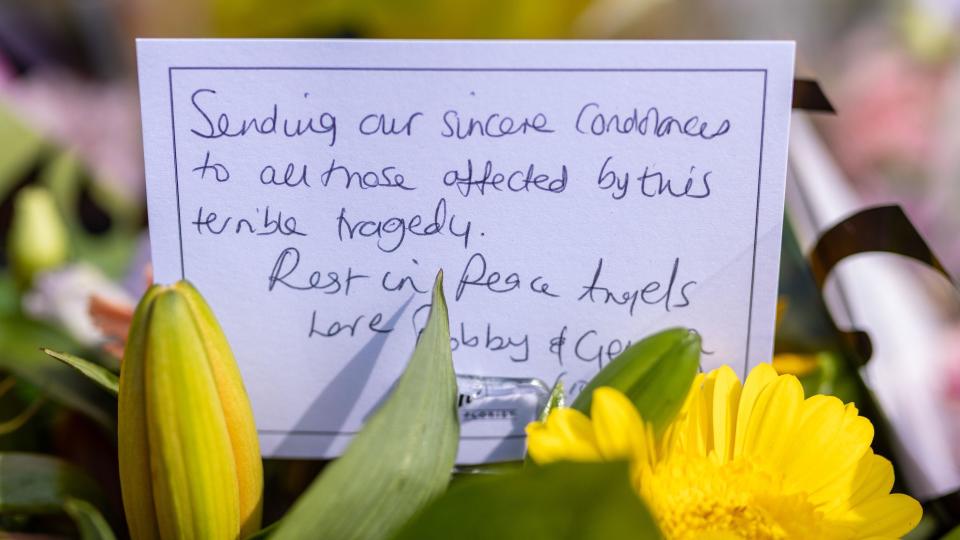 Sending our sincere Condolances
to all those affected by this
terrible tragedy.
Rest in Peace Angels
Love
&